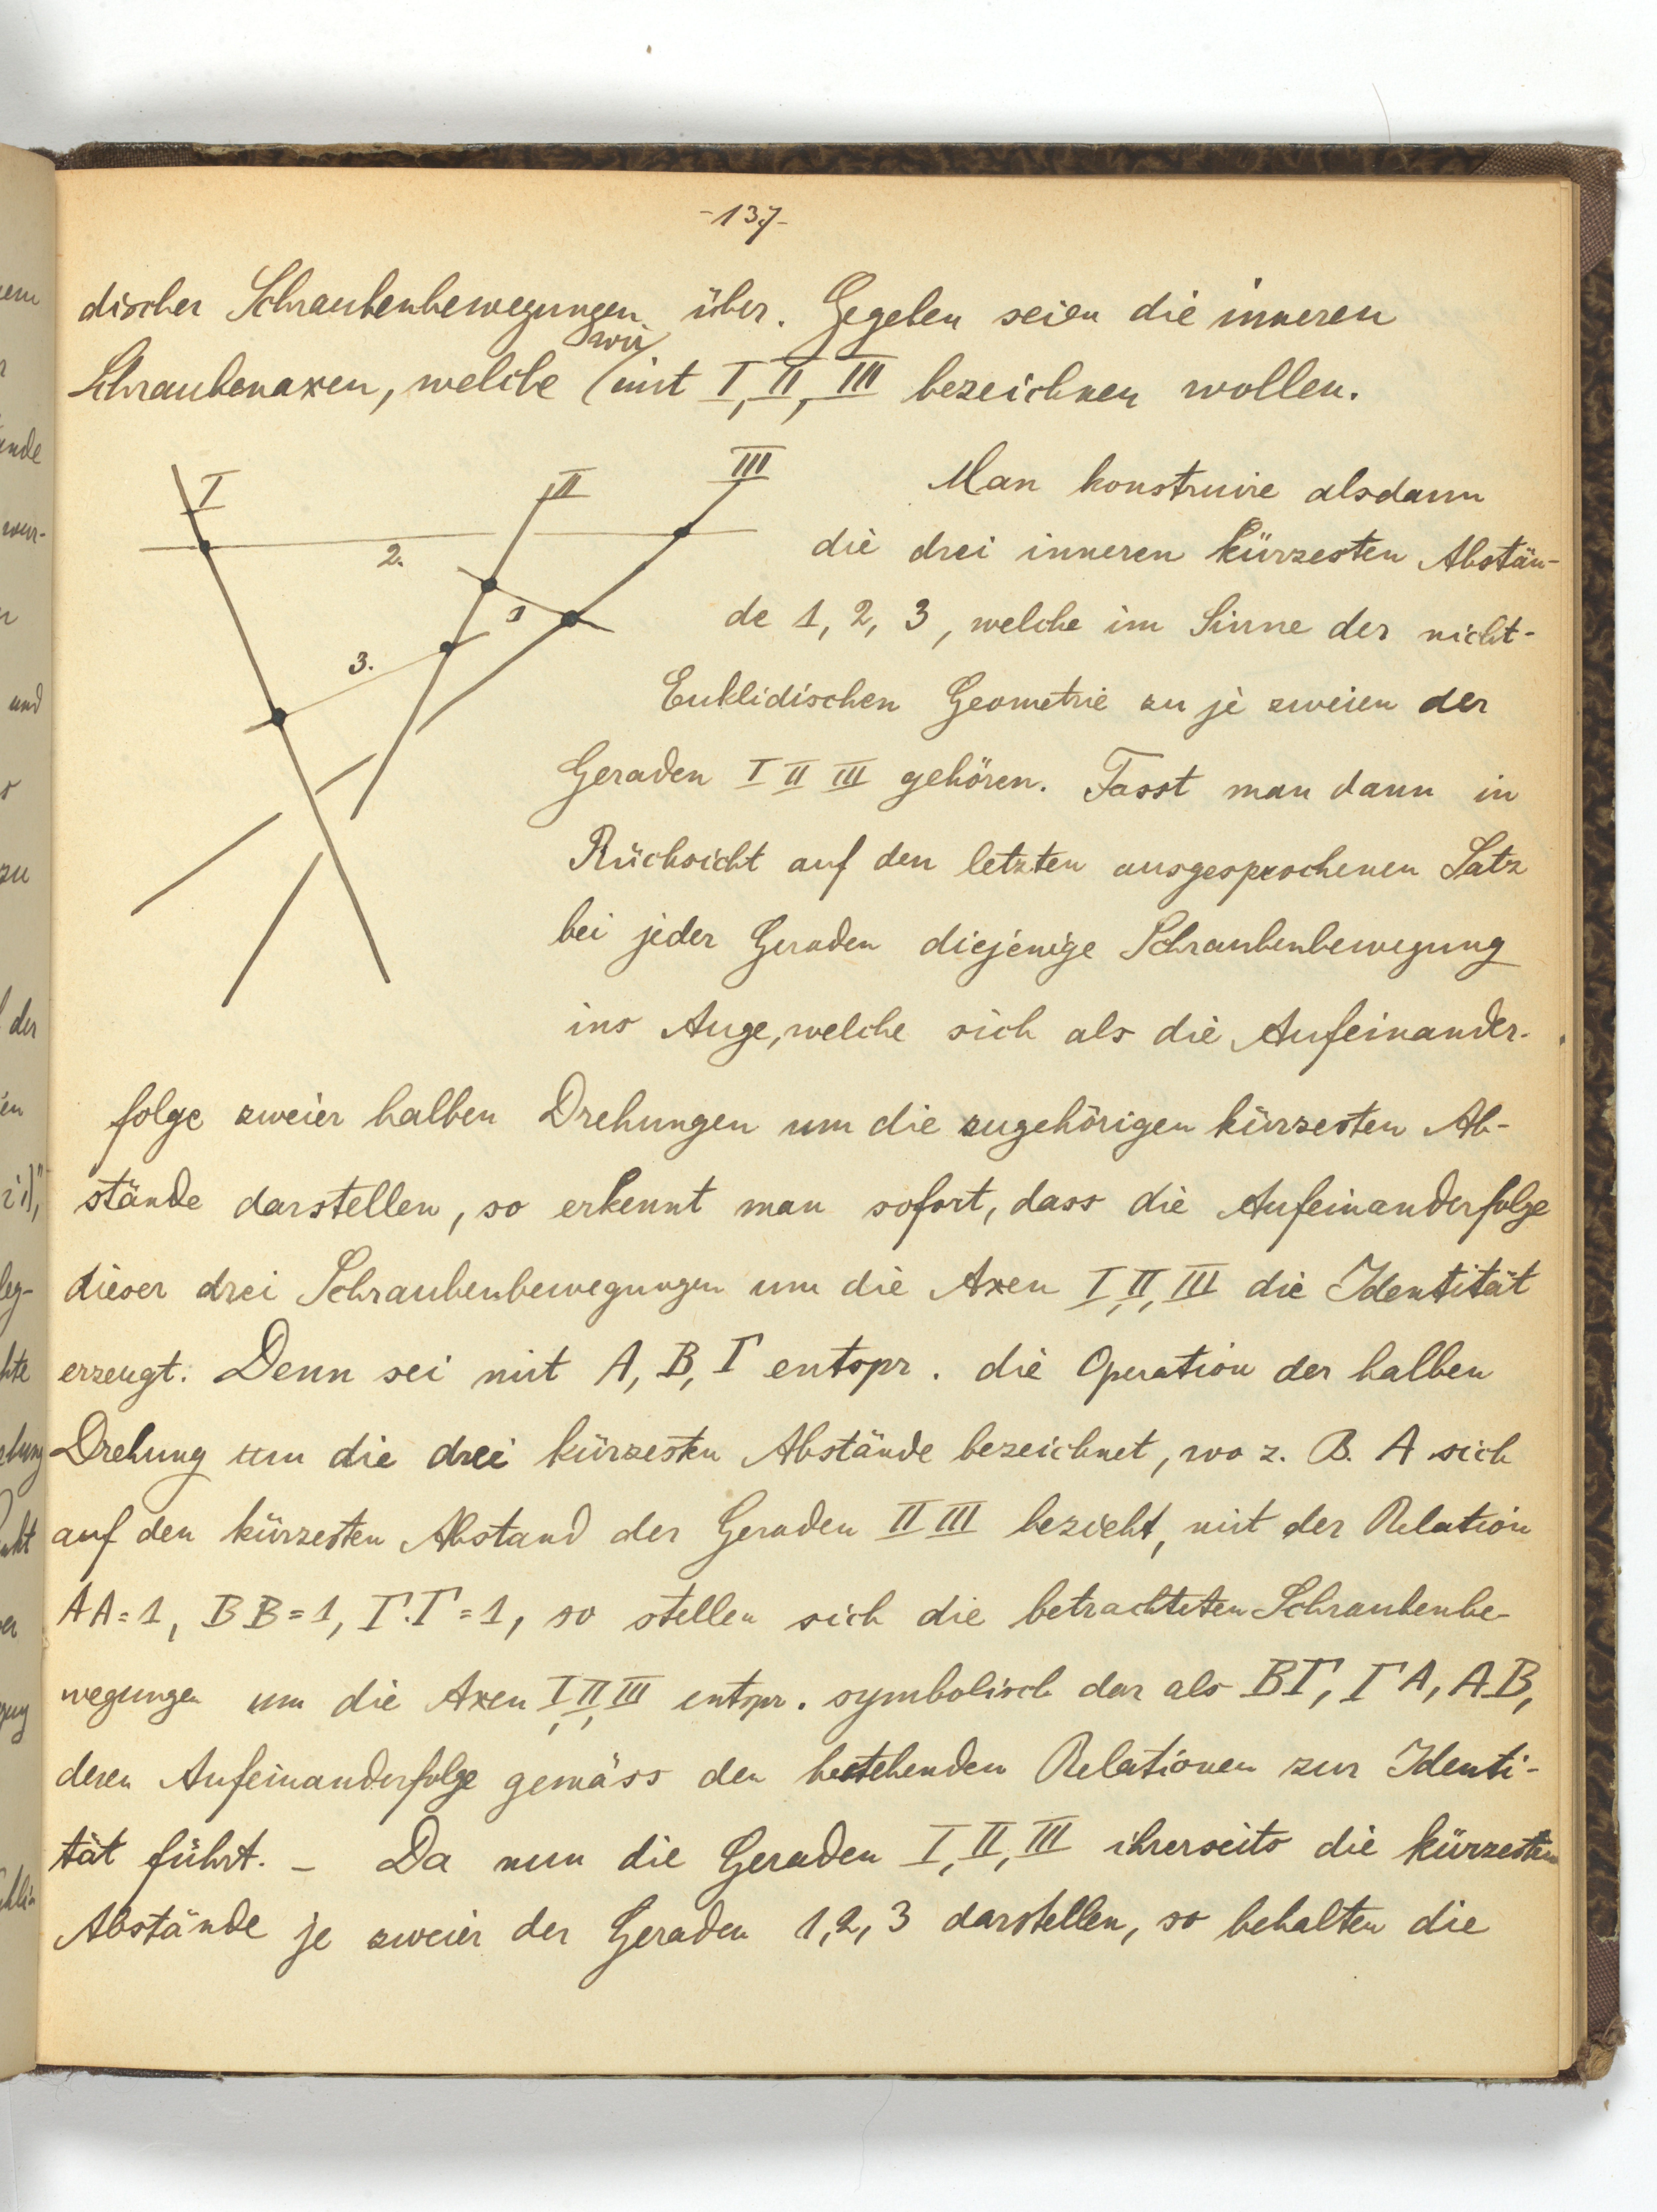 -137-
discher Schraubenbewegungen über. Gegeben seien die inneren
wir
Schraubenaxen, welche mit I, II, III bezeichnen wollen.
I
II
III
2.
1
3.
Man konstruire alsdann
die drei inneren kürzesten Abstän-
de 1, 2, 3, welche im Sinne der nicht-
Euklidischen Geometrie zu je zweien der
Geraden I II III gehören. Fasst man dann in
Rücksicht auf den letzten ausgesprochenen Satz
bei jeder Geraden diejenige Schraubenbewegung
ins Auge, welche sich als die Aufeinander-
folge zweier halben Drehungen um die zugehörigen kürzesten Ab-
stände darstellen, so erkennt man sofort, dass die Aufeinanderfolge
dieser drei Schraubenbewegungen um die Axen I, II, III die Identität
erzeugt. Denn sei mit A, B, Γ entspr. die Operation der halben
Drehung um die drei kürzesten Abstände bezeichnet, wo z. B. A sich
auf den kürzesten Abstand der Geraden II III bezieht, mit der Relation
AA = 1, BB = 1, Γ.Γ = 1, so stellen sich die betrachteten Schraubenbe-
wegungen um die Axen I, II, III entspr. symbolisch dar als BΓ, ΓA, AB,
deren Aufeinanderfolge gemäss den bestehenden Relationen zur Identi-
tät führt. – Da nun die Geraden I, II, III ihrerseits die kürzesten
Abstände je zweier der Geraden 1, 2, 3 darstellen, so behalten die